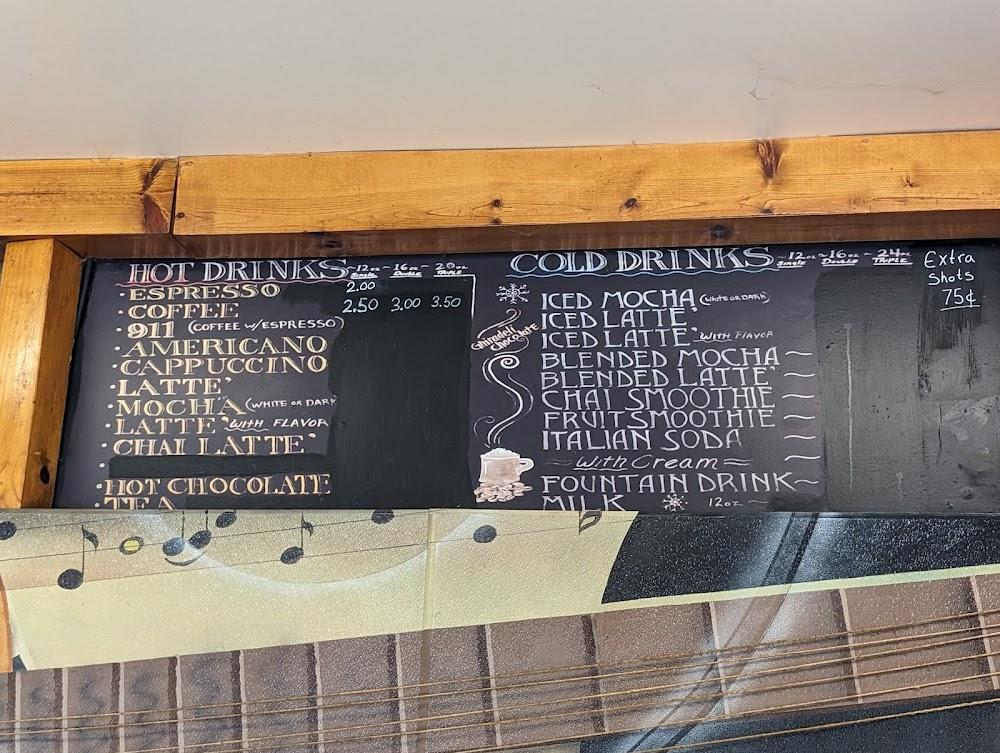 HOT DRINKS - 12oz ~ 16oz ~ 20oz
Single Double TRIPLE
· ESPRESSO 2.00
· COFFEE 2.50 3.00 3.50
· 911 (COFFEE W/ESPRESSO)
· AMERICANO
· CAPPUCCINO
· LATTE'
· MOCHA (WHITE OR DARK
· LATTE' WITH FLAVOR
· CHAI LATTE'
·
· HOT CHOCOLATE
· TEA
Ghiradeli Chocolate
COLD DRINKS - 12oz ~ 16oz ~ 24oz
Single Double TRIPLE
ICED MOCHA (WHITE OR DARK)
ICED LATTE'
ICED LATTE' WITH FLAVOR
BLENDED MOCHA ~
BLENDED LATTE' ~
CHAI SMOOTHIE ~
FRUIT SMOOTHIE ~
ITALIAN SODA ~
= With Cream = ~
FOUNTAIN DRINK ~
MILK 12oz ~
Extra
Shots
75¢